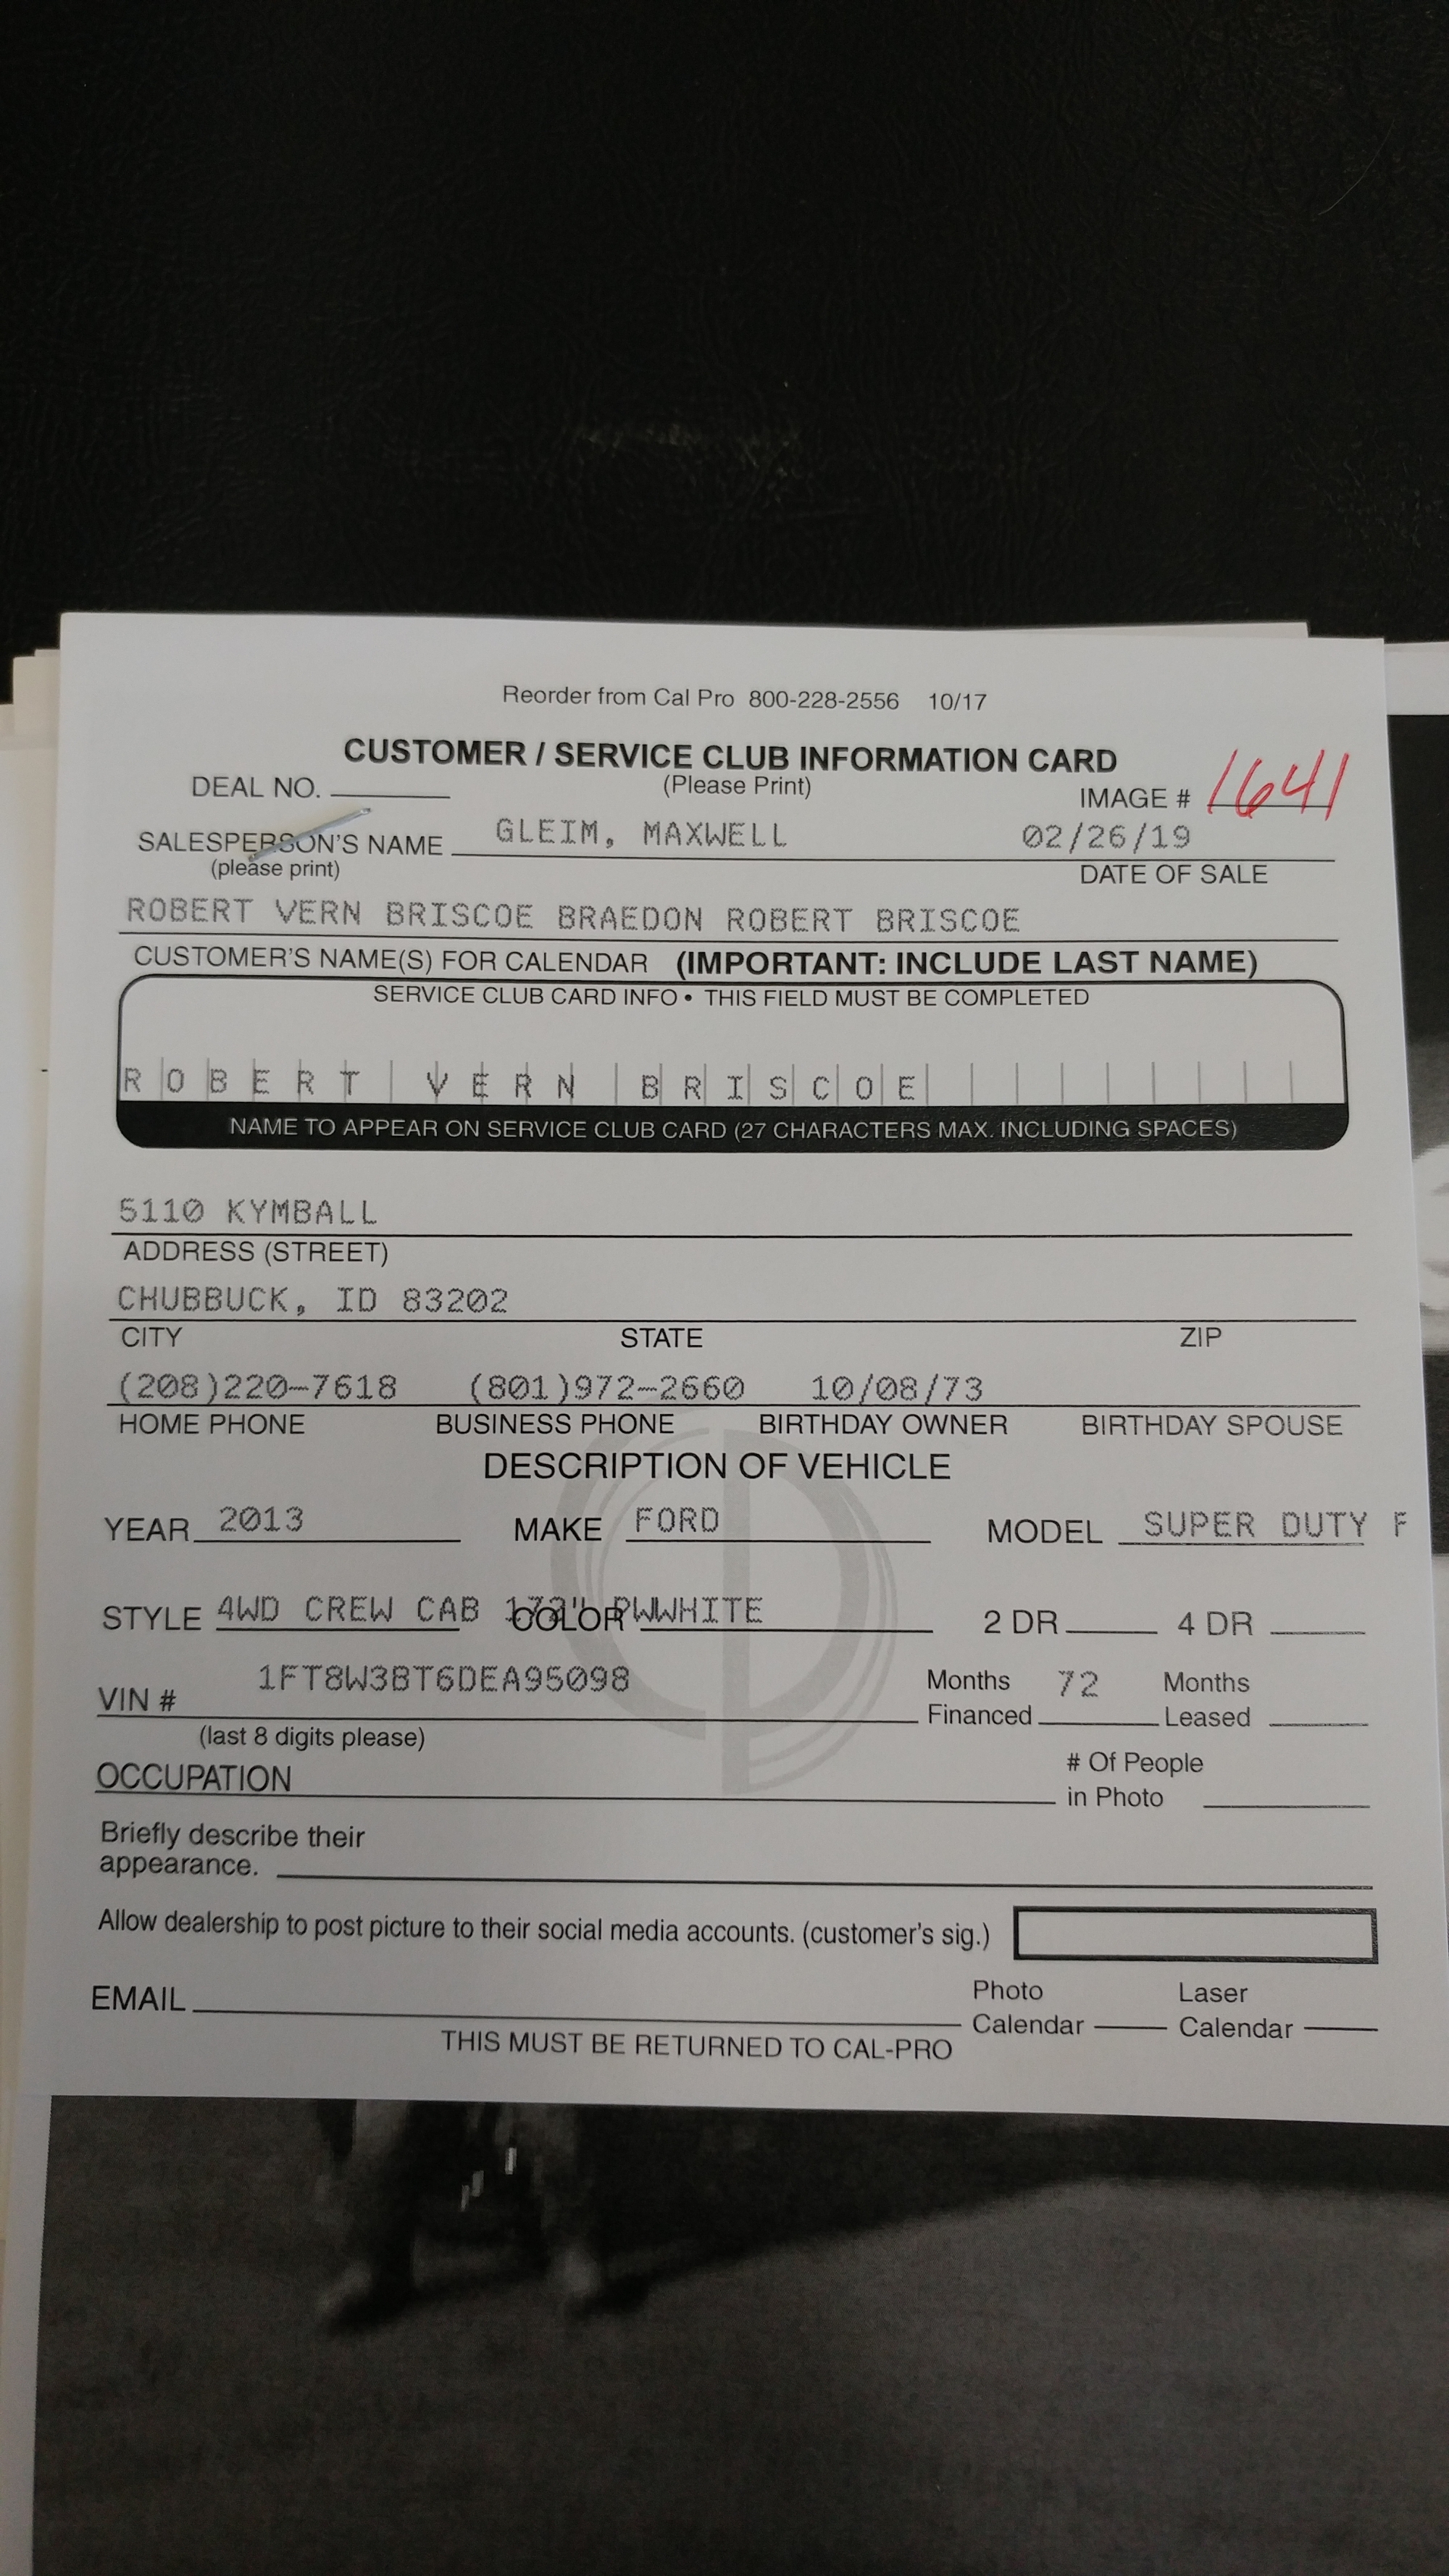 Reorder from Cal Pro 800-228-2556 10/17
CUSTOMER / SERVICE CLUB INFORMATION CARD
DEAL NO. (Please Print) IMAGE # 1641
SALESPERSON'S NAME GLEIM, MAXWELL 02/26/19
(please print) DATE OF SALE
ROBERT VERN BRISCOE BRAEDON ROBERT BRISCOE
CUSTOMER'S NAME(S) FOR CALENDAR (IMPORTANT: INCLUDE LAST NAME)
SERVICE CLUB CARD INFO • THIS FIELD MUST BE COMPLETED
ROBERT VERN BRISCOE
NAME TO APPEAR ON SERVICE CLUB CARD (27 CHARACTERS MAX. INCLUDING SPACES)
5110 KYMBALL
ADDRESS (STREET)
CHUBBUCK, ID 83202
CITY STATE ZIP
(208)220-7618 (801)972-2660 10/08/73
HOME PHONE BUSINESS PHONE BIRTHDAY OWNER BIRTHDAY SPOUSE
DESCRIPTION OF VEHICLE
YEAR 2013 MAKE FORD MODEL SUPER DUTY F
STYLE 4WD CREW CAB 172" COLOR PWWHITE 2 DR 4 DR
VIN # 1FT8W3BT6DEA95098 Months Financed 72 Months Leased
(last 8 digits please)
OCCUPATION # Of People in Photo
Briefly describe their
appearance.
Allow dealership to post picture to their social media accounts. (customer's sig.)
EMAIL Photo Calendar Laser Calendar
THIS MUST BE RETURNED TO CAL-PRO